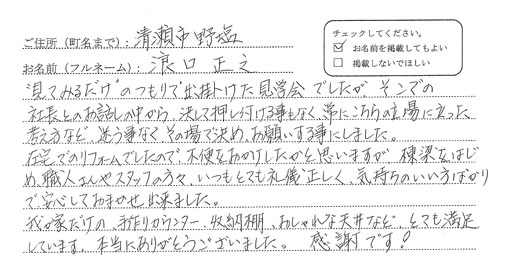 ご住所（町名まで）： 清瀬市野塩
チェックしてください。
☑ お名前を掲載してもよい
☐ 掲載しないでほしい
お名前（フルネーム）： 浪口 正之
"見てみるだけ"のつもりで出掛けた見学会でしたが、そこでの
社長とのお話しの中から、決して押し付ける事もなく、常にこちらの立場に立った
考え方など、迷う事なくその場で決め、お願いする事にしました。
在宅でのリフォームでしたので、不便をおかけしたかと思いますが、棟梁をはじ
め、職人さんやスタッフの方々、いつもとても礼儀正しく、気持ちのいい方ばかり
で安心しておまかせ出来ました。
我が家だけの、手作りカウンター、収納棚、おしゃれな天井など、とても満足
しています。本当にありがとうございました。 感謝です！